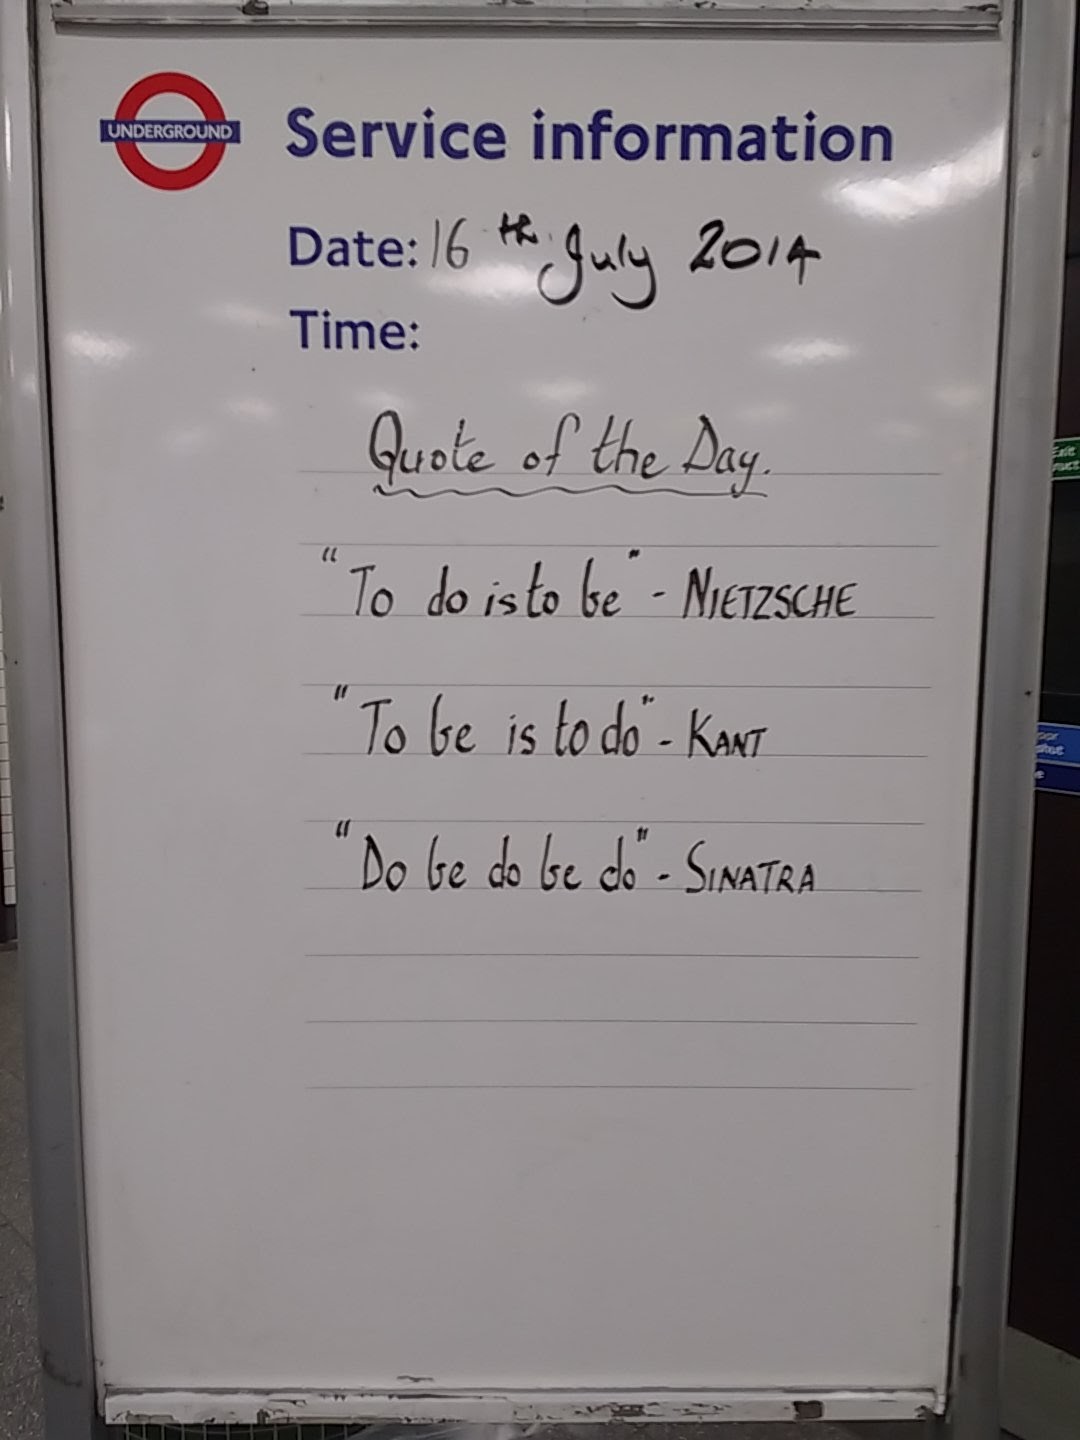 UNDERGROUND
Service information
Date: 16th July 2014
Time:
Quote of the Day.
"To do is to be" - NIETZSCHE
"To be is to do" - KANT
"Do be do be do" - SINATRA
Exit